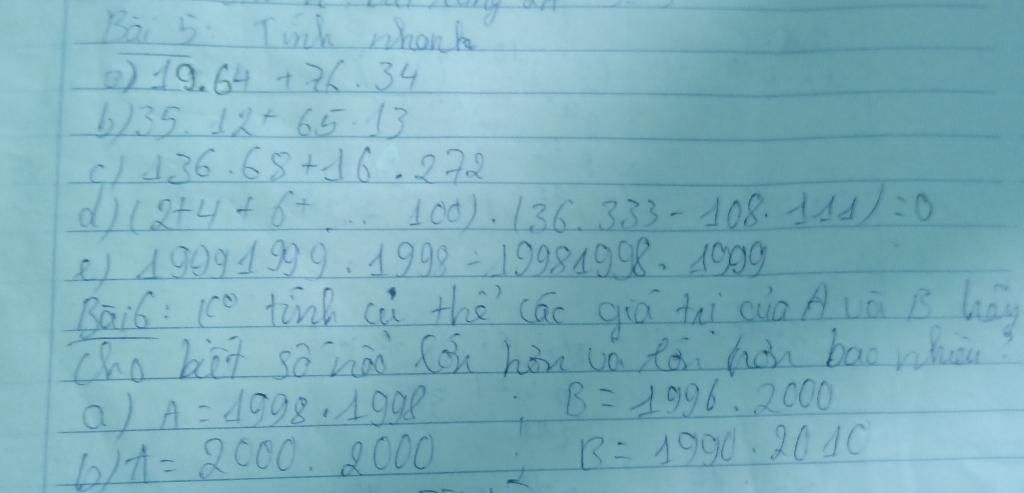 Bài 5: Tính nhanh
a) 19.64 + 76.34
b) 35.12 + 65.13
c) 136.68 + 16.272
d) (2+4+6+ ... 100).(36.333 - 108.111) = 0
e) 19991999.1998 - 19981998.1999
Bài 6: Ko tính cụ thể các giá trị của A và B hãy
Cho biết số nào lớn hơn và lớn hơn bao nhiêu?
a) A = 1998.1998 ; B = 1996.2000
b) A = 2000.2000 ; B = 1990.2010